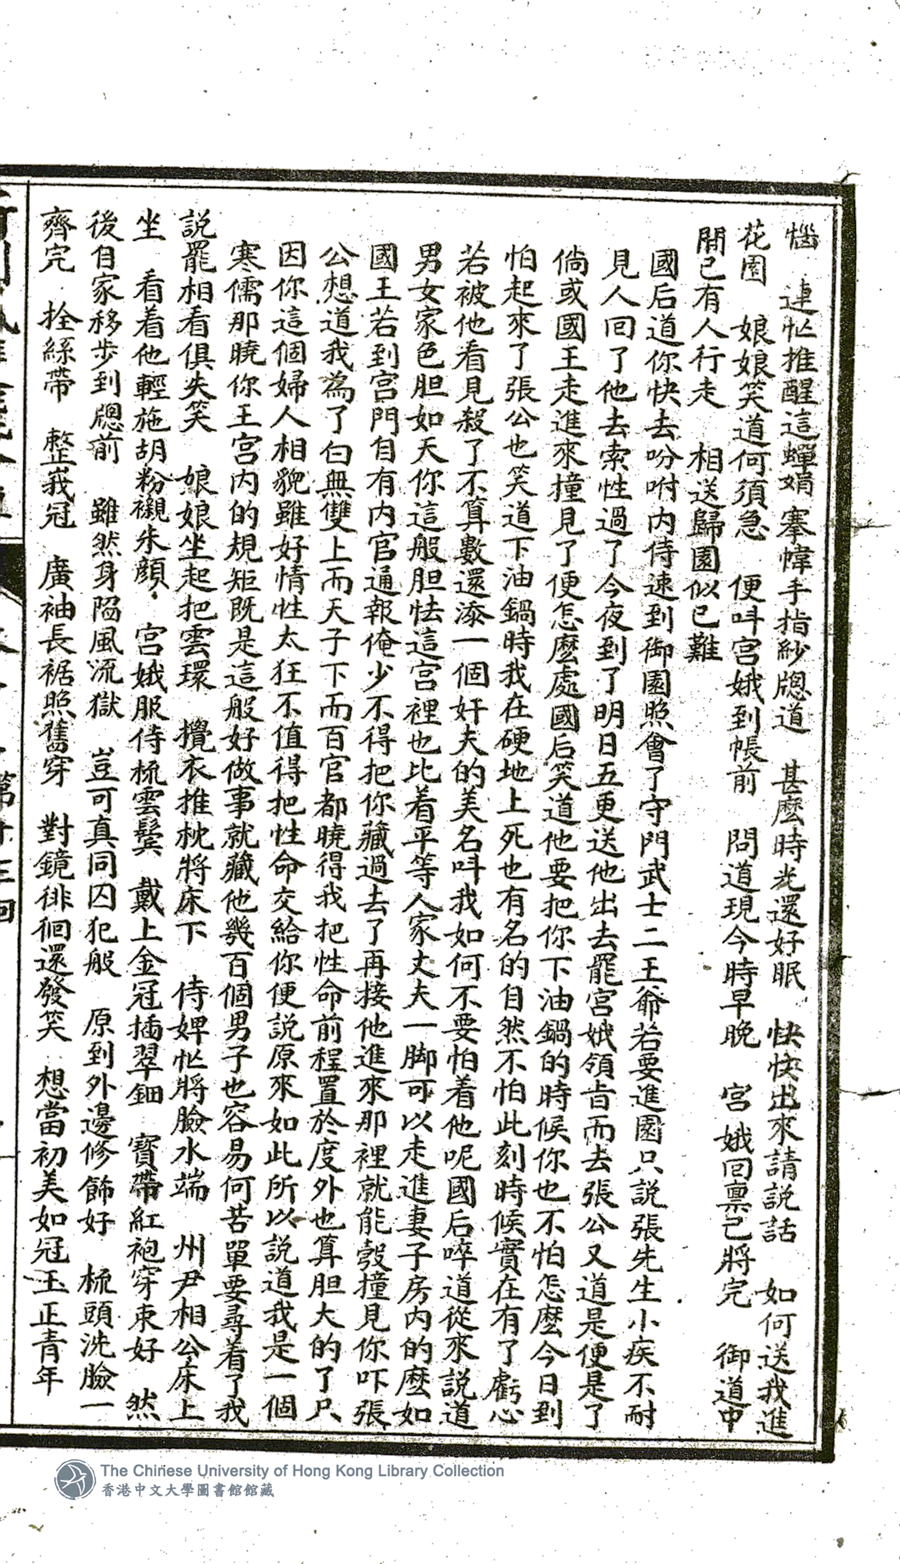 惱　連忙推醒這蟬娟　搴幃手指紗牕道　甚麼時光還好眠　快快出來請説話　如何送我進
花園　娘娘笑道何須急　便呌宮娥到帳前　問道現今時早晚　宮娥回稟已將完　御道中
間已有人行走　相送歸園似已難
國后道你快去吩咐内侍速到御園照會了守門武士二王爺若要進園只説張先生小疾不耐
見人回了他去索性過了今夜到了明日五更送他出去罷宮娥領旨而去張公又道是便是了
倘或國王走進來撞見了便怎麽處國后笑道他要把你下油鍋的時候你也不怕怎麽今日到
怕起來了張公也笑道下油鍋時我在硬地上死也有名的自然不怕此刻時候實在有了虧心
若被他看見殺了不算數還添一個奸夫的美名呌我如何不要怕着他呢國后啐道從來説道
男女家色胆如天你這般胆怯這宮裡也比着平等人家丈夫一脚可以走進妻子房内的麽如
國王若到宮門自有内官通報俺少不得把你藏過去了再接他進來那裡就能彀撞見你吓張
公想道我爲了白無雙上而天子下而百官都曉得我把性命前程置於度外也算胆大的了只
因你這個婦人相貌雖好情性太狂不值得把性命交給你便説原來如此所以説道我是一個
寒儒那曉你王宮内的規矩既是這般好做事就藏他幾百個男子也容易何苦單要尋着了我
説罷相看俱失笑　娘娘坐起把雲環　攪衣推枕將床下　侍婢忙將臉水端　州尹相公床上
坐　看着他輕施胡粉襯朱顔　宮娥服侍梳雲鬓　戴上金冠插翠鈿　寶帶紅袍穿束好　然
後自家移步到牕前　雖然身陷風流獄　豈可真同囚犯般　原到外邊修飾好　梳頭洗臉一
齊完　拴絲帶　整峩冠　廣袖長裾照舊穿　對鏡徘徊還發笑　想當初美如冠玉正青年
第十三回
The Chinese University of Hong Kong Library Collection
香港中文大學圖書館館藏